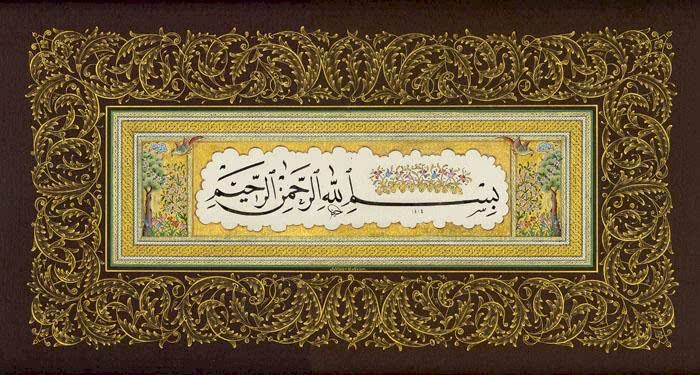 بِسْمِ اللّٰهِ الرَّحْمٰنِ الرَّحِيْمِ
١٤٠٤